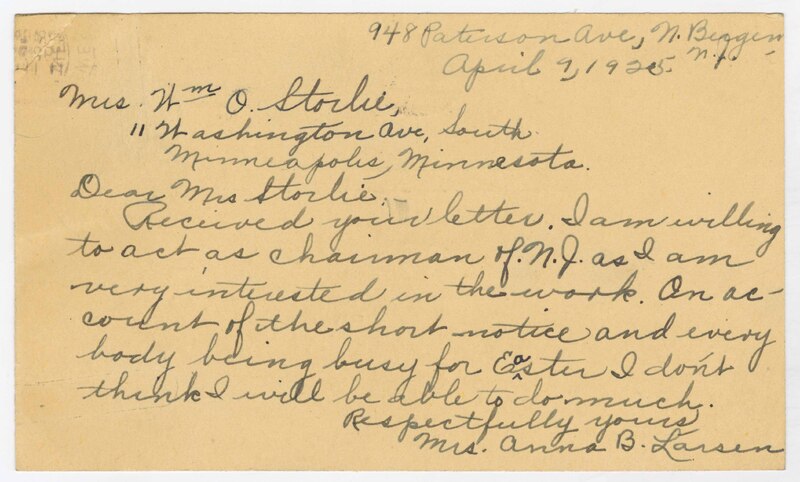 948 Paterson Ave, N. Bergen
N.J.
April 9, 1925.
Mrs. Wm O. Storlie,
11 Washington Ave, South
Minneapolis, Minnesota.
Dear Mrs Storlie.
Received your letter. I am willing
to act as chairman of N.J. as I am
very interested in the work. On ac-
count of the short notice and every
body being busy for Easter I don't
think I will be able to do much.
Respectfully yours
Mrs. Anna B. Larsen